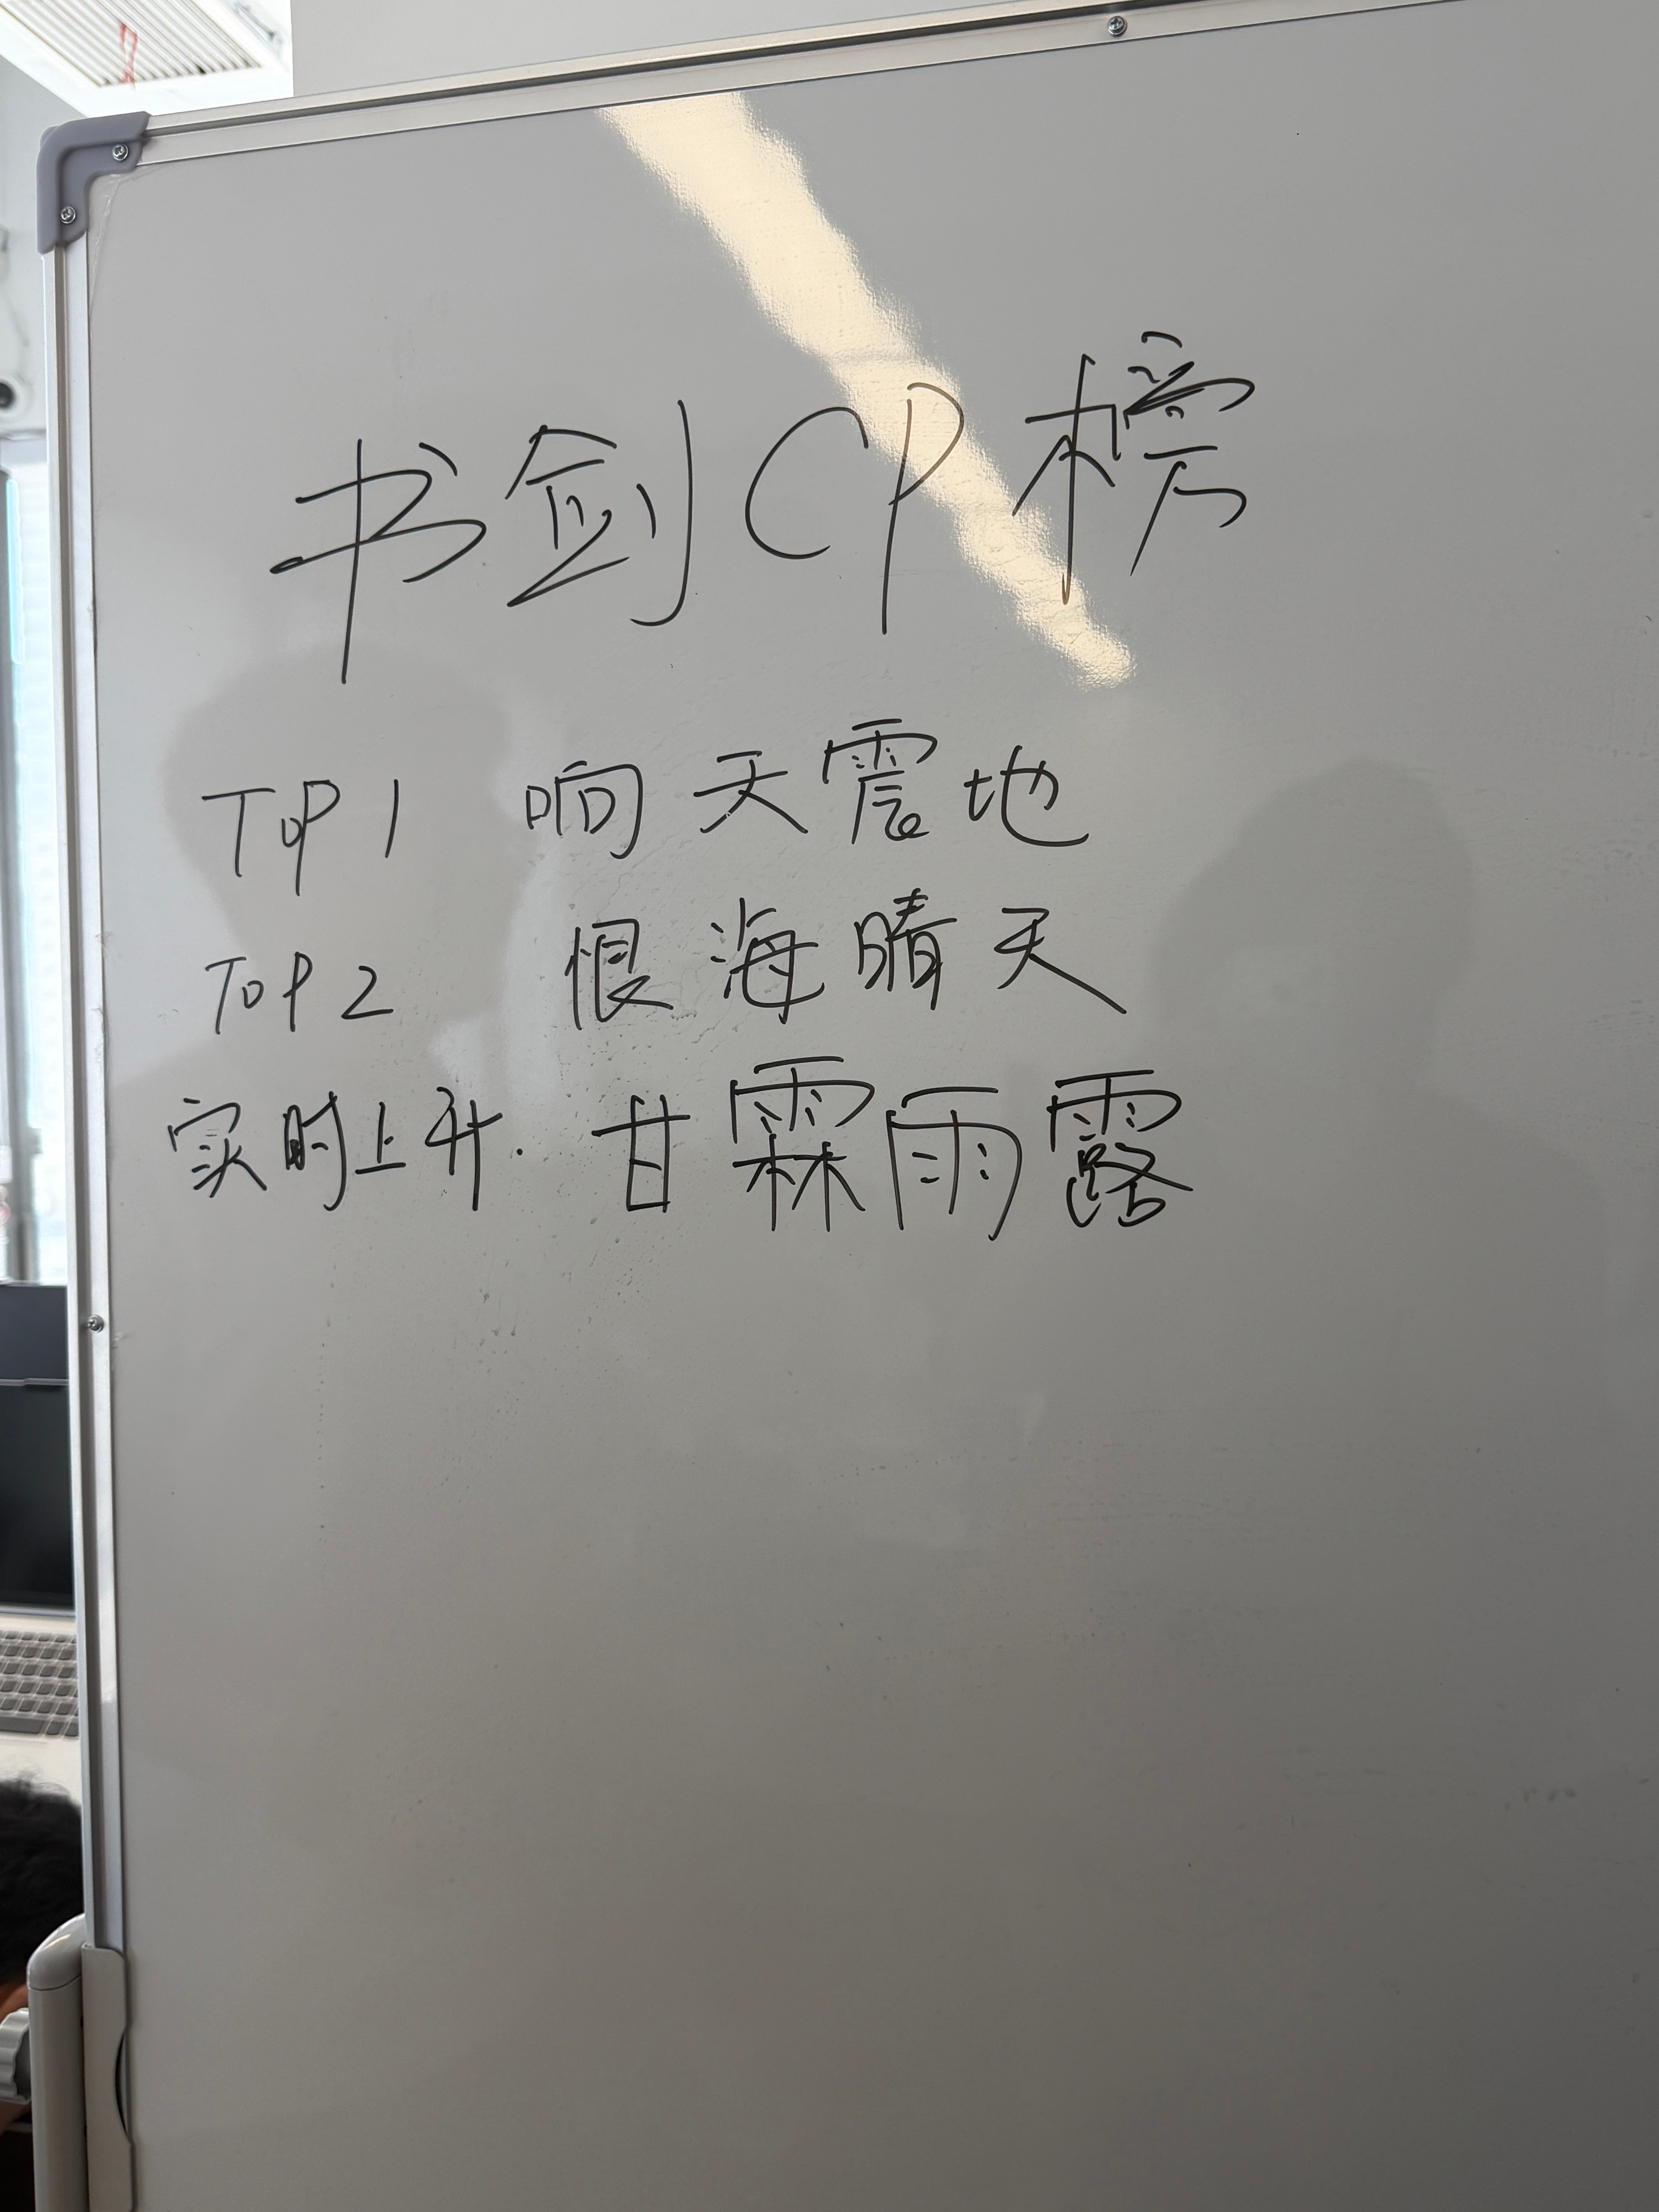 书剑CP榜
TOP1 响天震地
TOP2 恨海晴天
实时上升. 甘霖雨露